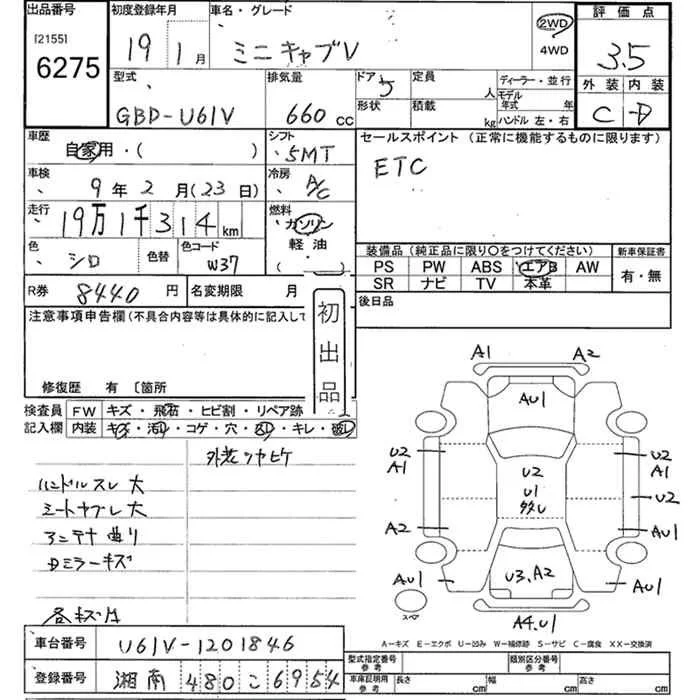 出品番号 初度登録年月 車名・グレード 評価点
[2155] 6275 19 1月 ミニキャブV 2WD 4WD 3.5
型式 排気量 ドア 定員 ディーラー・並行 外装 内装
GBD-U61V 660 cc 5 人 モデル年式 年 C D
形状 積載 kg ハンドル 左・右
車歴 シフト セールスポイント (正常に機能するものに限ります)
自家用・( ) 5MT ETC
車検 冷房
9年2月(23日) A/C
走行 燃料
19万1千314km ガソリン
色 色替 色コード 軽油
シロ W37 ( )
装備品 (純正品に限り○をつけてください) 新車保証書
PS PW ABS エアB AW 有・無
SR ナビ TV 本革
R券 8440円 名変期限 月 後日品
注意事項申告欄 (不具合内容等は具体的に記入して
初出品
修復歴 有 〔箇所
検査員記入欄 FW キズ・飛石・ヒビ割・リペア跡
内装 キズ・汚レ・コゲ・穴・・キレ・破レ
外装ツヤヒケ
ハンドルスレ大
シートヤブレ大
アンテナ曲り
Dミラーキズ
各キズ凹
A1 A2
AU1
U2 A1 U2 U2 A1
U1 U2
多数U
A2 AU1
AU1 U3,A2 AU1
スペア A4.U1
A-キズ E-エクボ U-凹み W-補修跡 S-サビ C-腐食 XX-交換済
車台番号 U61V-1201846
型式指定番号 参考 類別区分番号 参考
登録番号 湘南 480 こ 6954
車庫証明用 参考 長さ cm 幅 cm 高さ cm